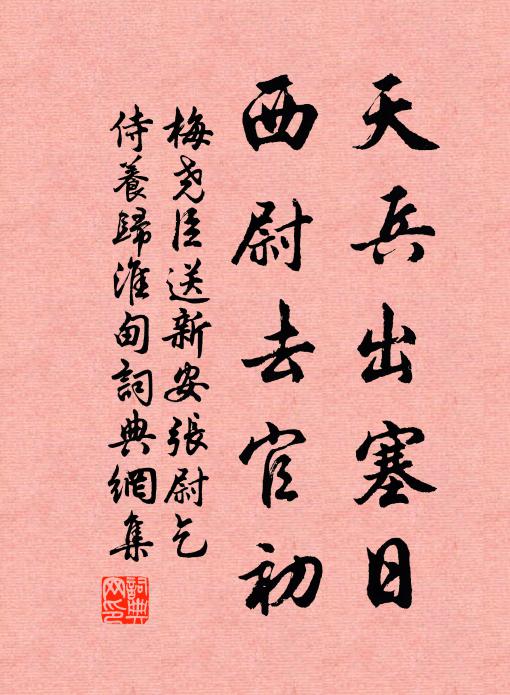 天兵出塞日
西尉去官初
梅尧臣送新安張尉乞
侍養歸淮甸詞典網集
詞典
网印